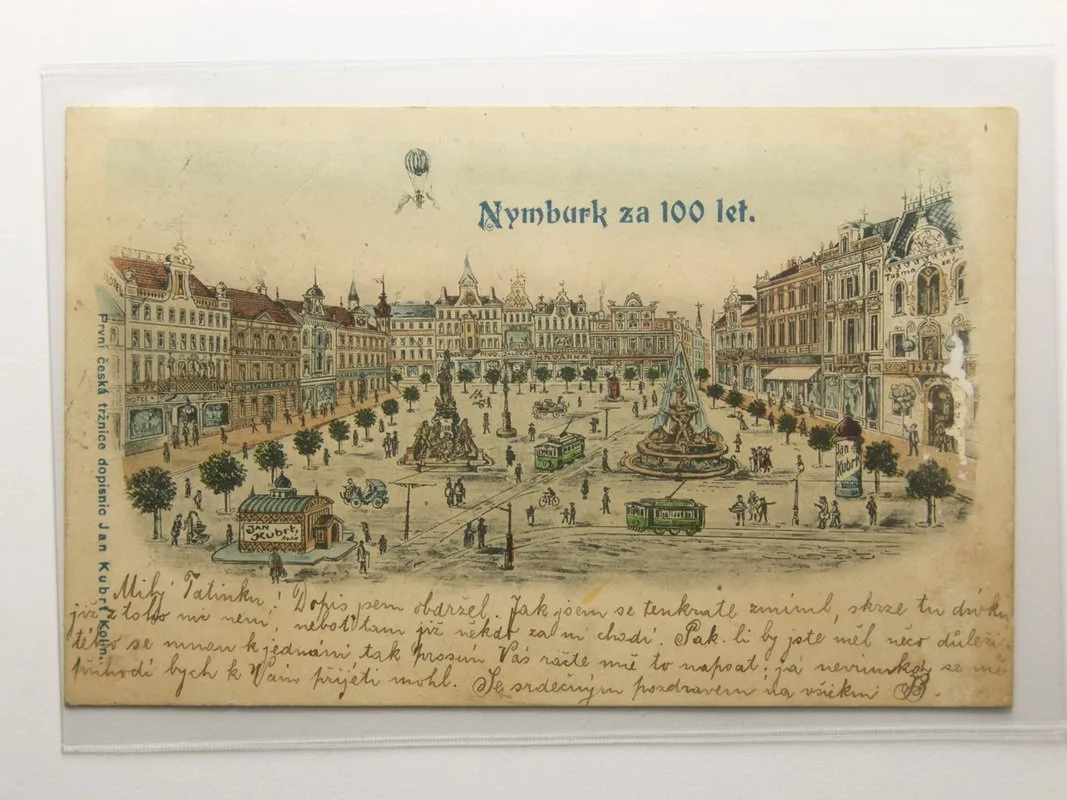 Nymburk za 100 let.
HOTEL
KAVÁRNA
Jan
Kubrt
Kolín
JAN
Kubrt,
První česká tržnice dopisnic Jan Kubrt Kolín.
Milý Tatínku! Dopis jsem obdržel. Jak jsem se tenkráte zmínil, skrze tu dívku
již z toho nic není, neboť tam již někdo za ní chodí. Pak-li by jste měl něco důleži-
tého se mnou k jednání tak prosím Vás račte mě to napsat; já se
přihodí bych k Vám přijeti mohl. Se srdečným pozdravem na všickni B.